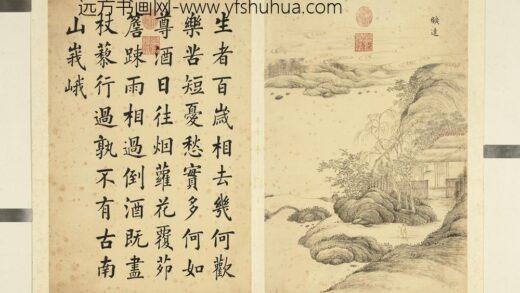 远方书画网-www.yfshuhua.com
曠達
生者百歲相去幾何歡
樂苦短憂愁實多何如
尊酒日往烟蘿花覆茆
簷踈雨相過倒酒既盡
杖藜行過孰不有古南
山峩峨